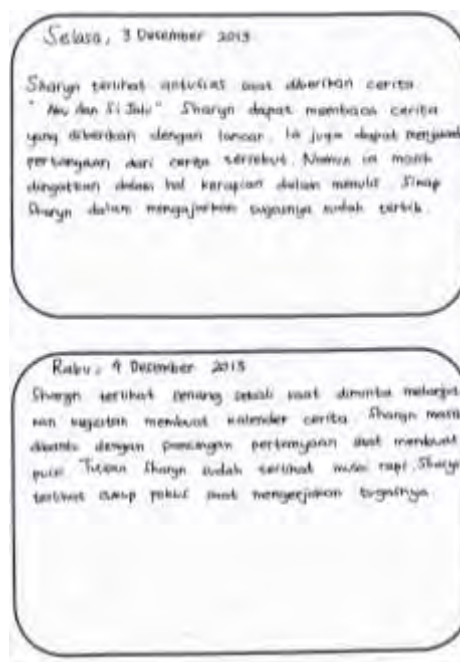 Selasa, 3 Desember 2013
Sharyn terlihat antusias saat diberikan cerita
" Aku dan Si Jalu" Sharyn dapat membaca cerita
yang diberikan dengan lancar. Ia juga dapat menjawab
pertanyaan dari cerita tersebut. Namun ia masih
diingatkan dalam hal kerapian dalam menulis. Sikap
Sharyn dalam mengerjakan tugasnya sudah tertib.
Rabu, 4 Desember 2013
Sharyn terlihat senang sekali saat diminta melanjut
kan kegiatan membuat kalender cerita. Sharyn masih
dibantu dengan pancingan pertanyaan saat membuat
puisi. Tulisan Sharyn sudah terlihat mulai rapi. Sharyn
terlihat cukup fokus saat mengerjakan tugasnya.